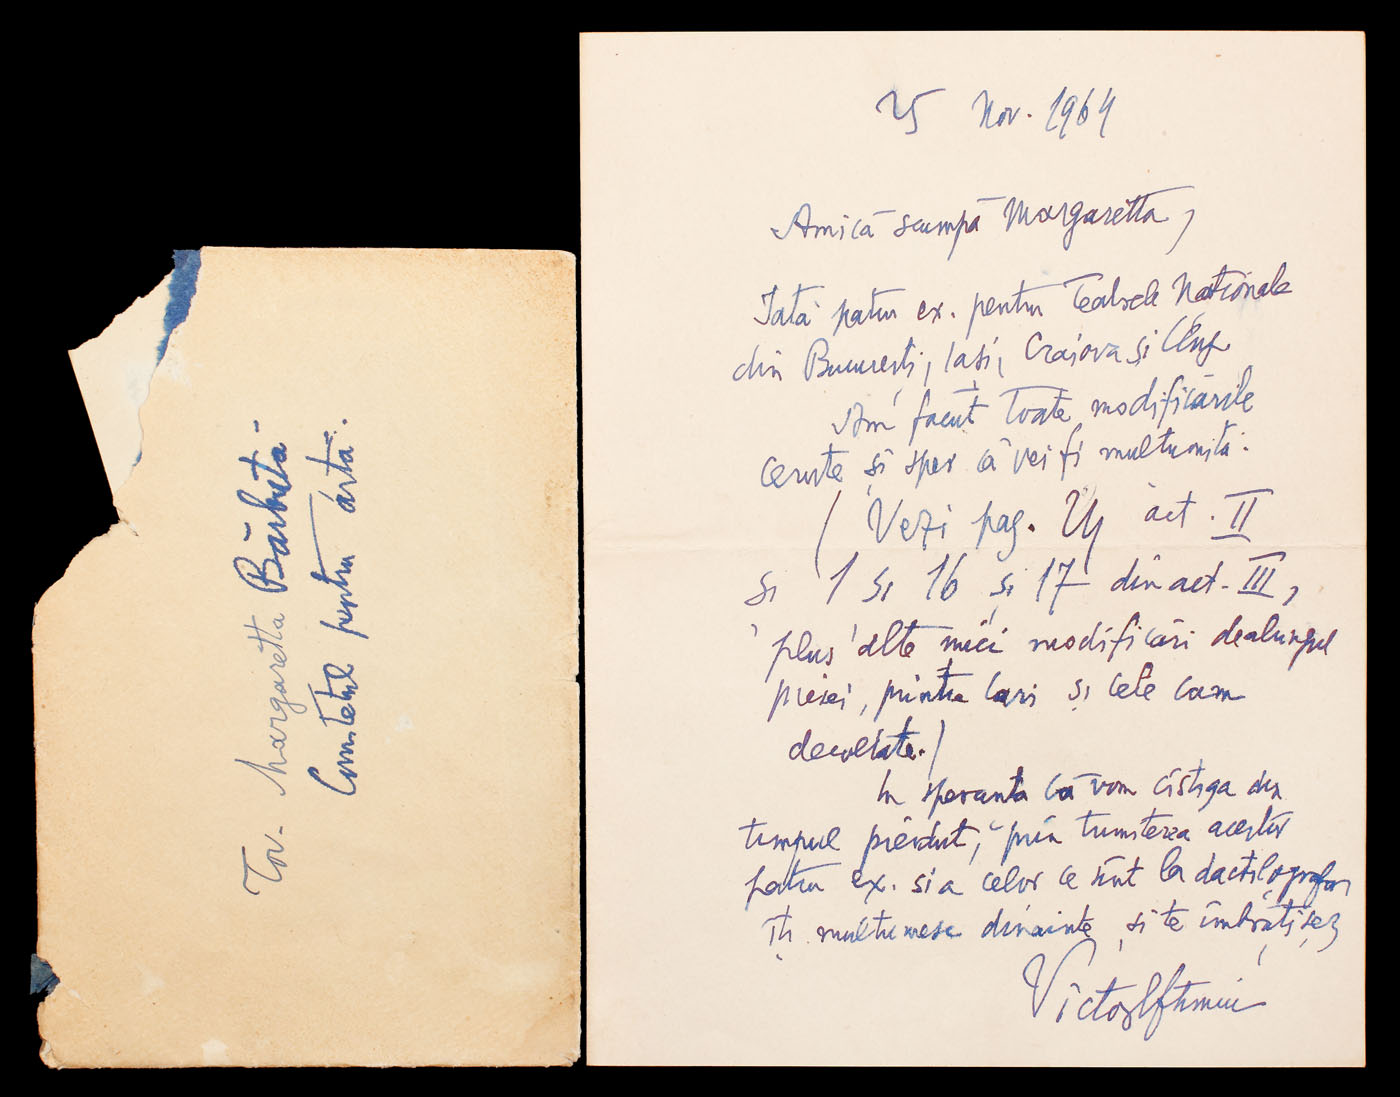 Tov. Margaretta Bărbuță -
Comitetul pentru artă.
25 Nov. 1964
Amică scumpă Margaretta,
Iată patru ex. pentru Teatrele Naționale
din București, Iași, Craiova și Cluj
Am făcut toate modificările
cerute și sper că vei fi mulțumită.
(Vezi pag. act. II
și 1 și 16 și 17 din act. III,
plus alte mici modificări dealungul
piesei, printre cari și cele cam
decoltate.)
In speranța că vom cîștiga din
timpul pierdut, prin trimiterea acestor
patru ex. si a celor ce sînt la dactilografiat
îți mulțumesc dinainte și te îmbrățișez
Victor Eftimiu